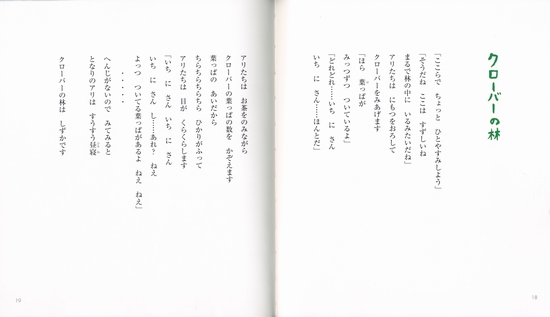 クローバーの林
「ここらで　ちょっと　ひとやすみしよう」
「そうだね　ここは　すずしいね
まるで林の中に　いるみたいだね」
アリたちは　にもつをおろして
クローバーをみあげます
「ほら　葉っぱが
みっつずつ　ついているよ」
「どれどれ……いち　に　さん
いち　に　さん……ほんとだ」
18
アリたちは　お茶をのみながら
クローバーの葉っぱの数を　かぞえます
葉っぱの　あいだから
ちらちらちらちら　ひかりがふって
アリたちは　目が　くらくらします
「いち　に　さん　いち　に　さん
いち　に　さん　し……あれ？　ねえ
よっつ　ついてる葉っぱがあるよ　ねえ　ねえ」
・・・・・
へんじがないので　みてみると
となりのアリは　すうすう昼寝
クローバーの林は　しずかです
19